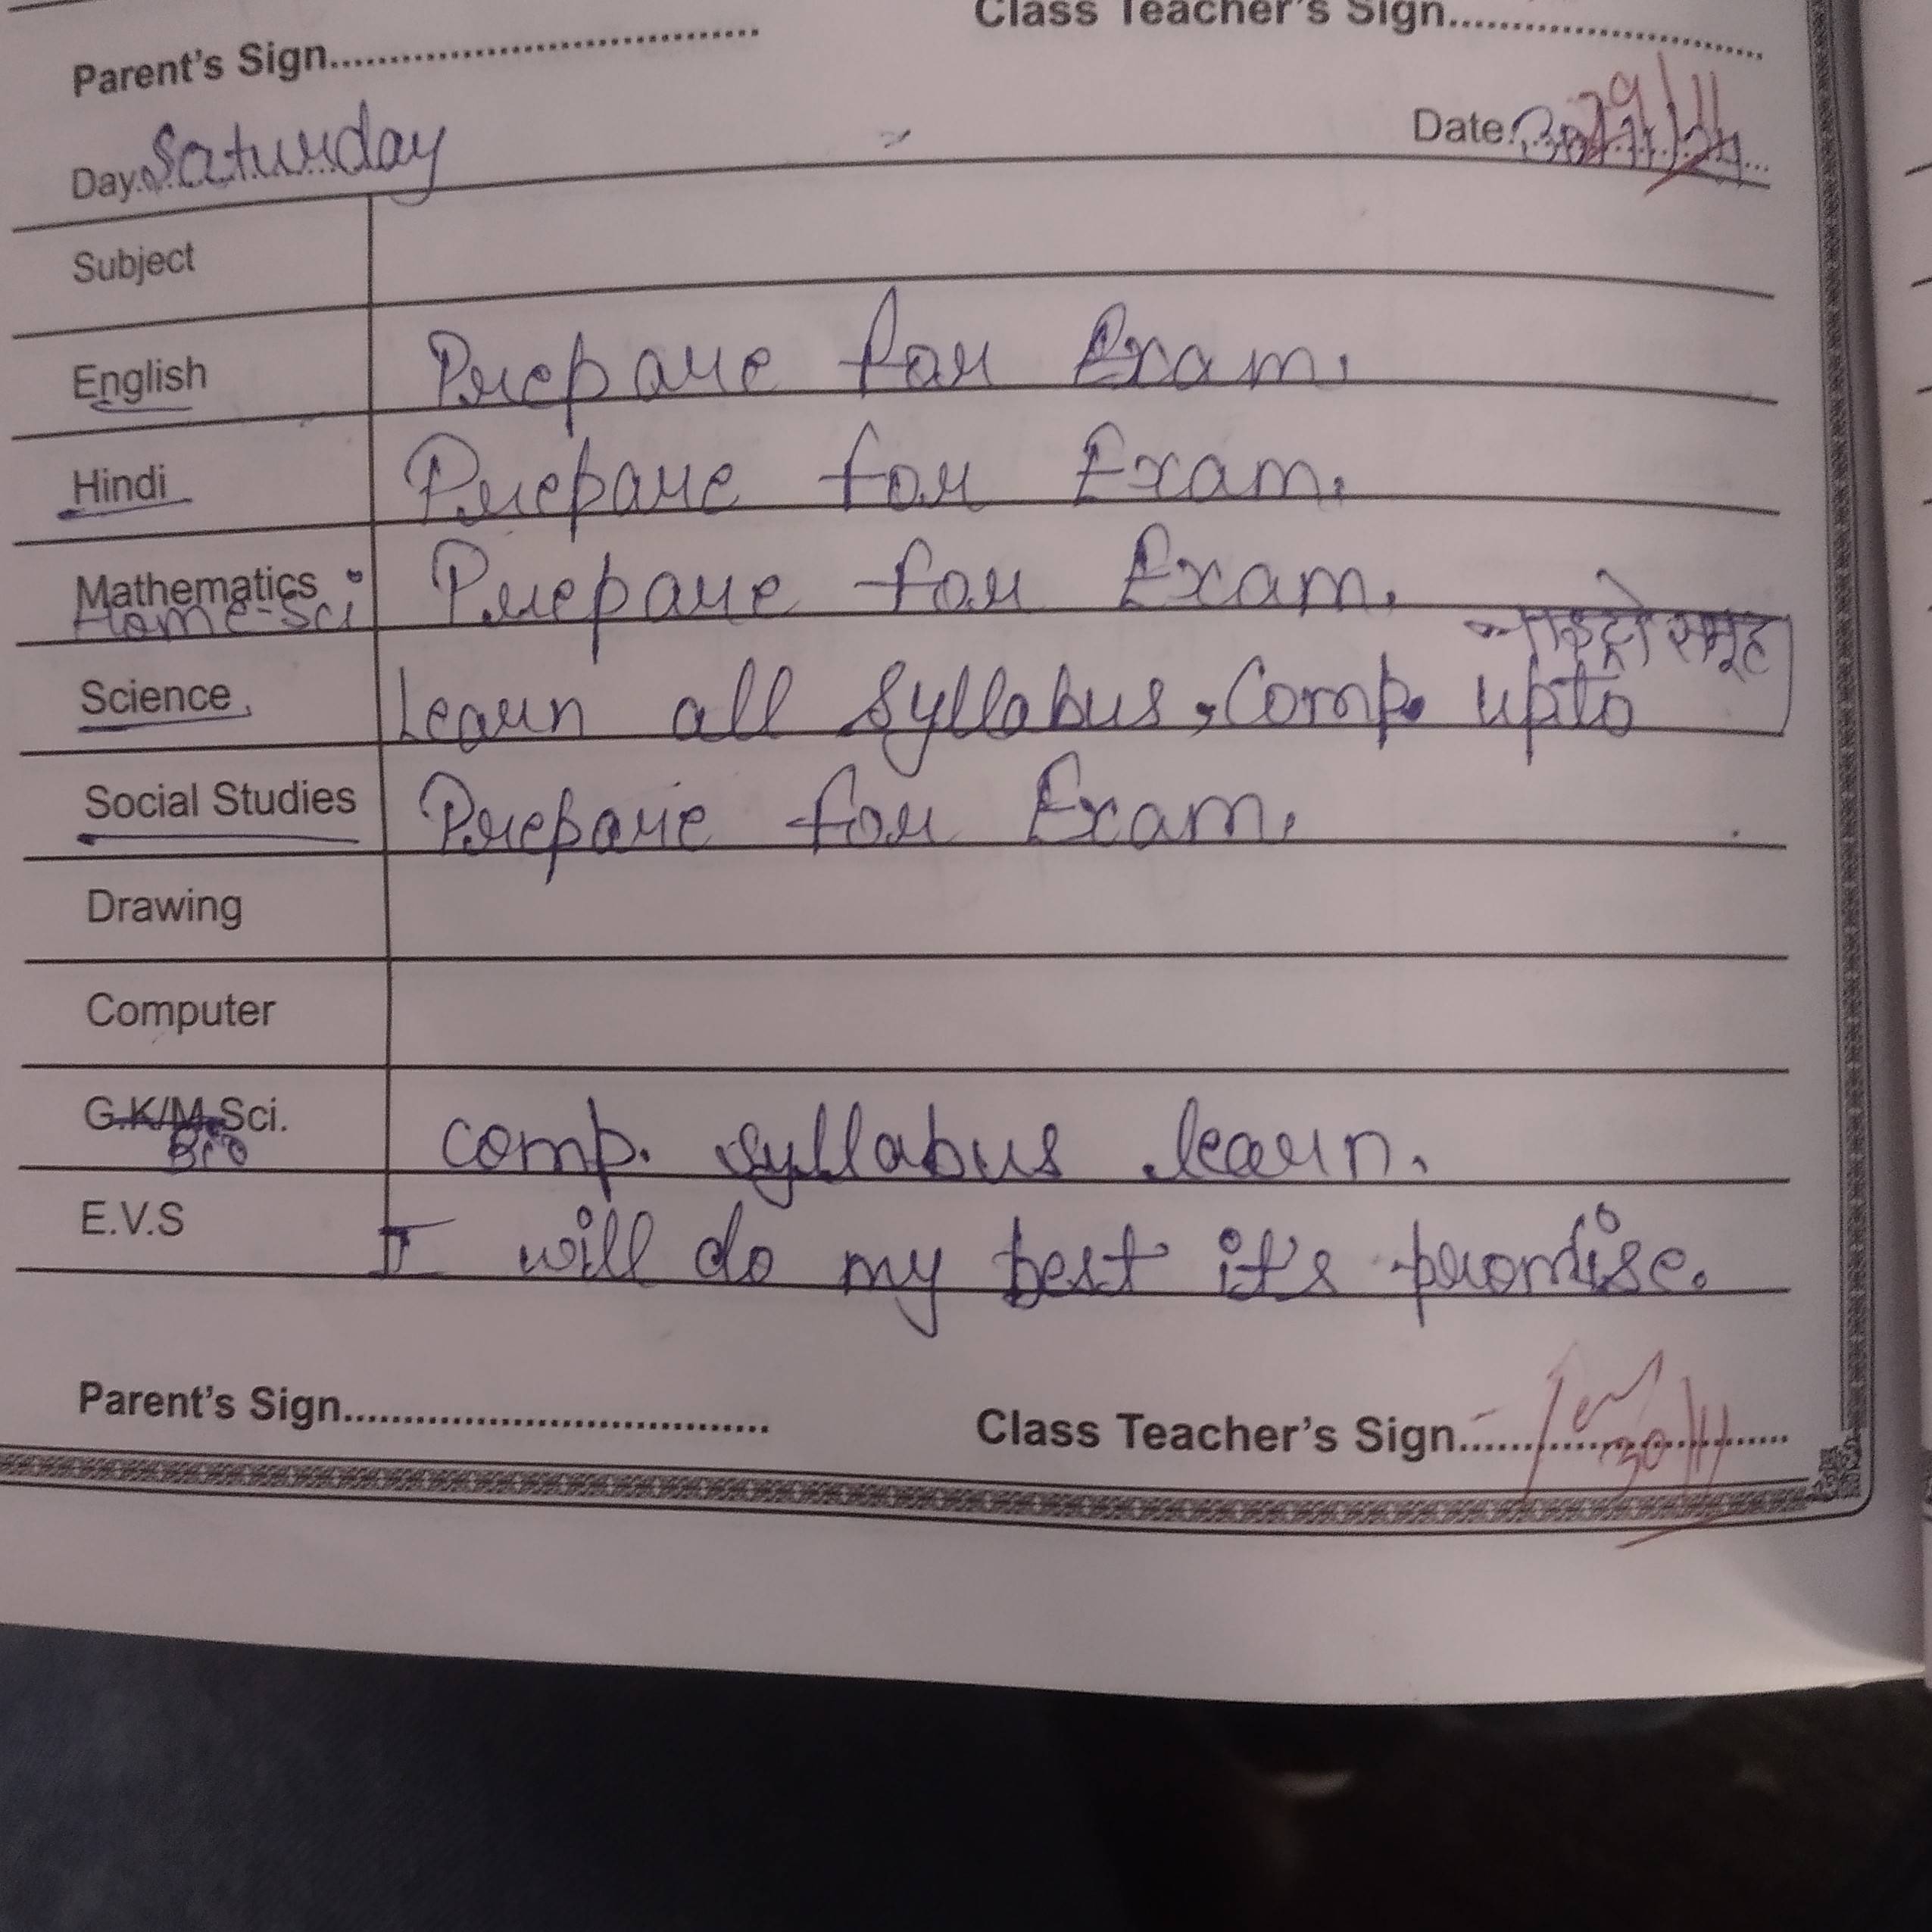 Class Teacher's Sign..............................
Parent's Sign....................................
Day. Saturday
Date: 30/11/24
29/11
Subject
English Prepare for Exam.
Hindi Prepare for Exam.
Mathematics Prepare for Exam.
Home-Sci
नाइट्रो समूह
Science Learn all syllabus, Comp. upto
Social Studies Prepare for Exam.
Drawing
Computer
G.K/M.Sci. comp. syllabus learn.
Bio
E.V.S I will do my best it's promise.
Parent's Sign....................................
Class Teacher's Sign..............................
30/11